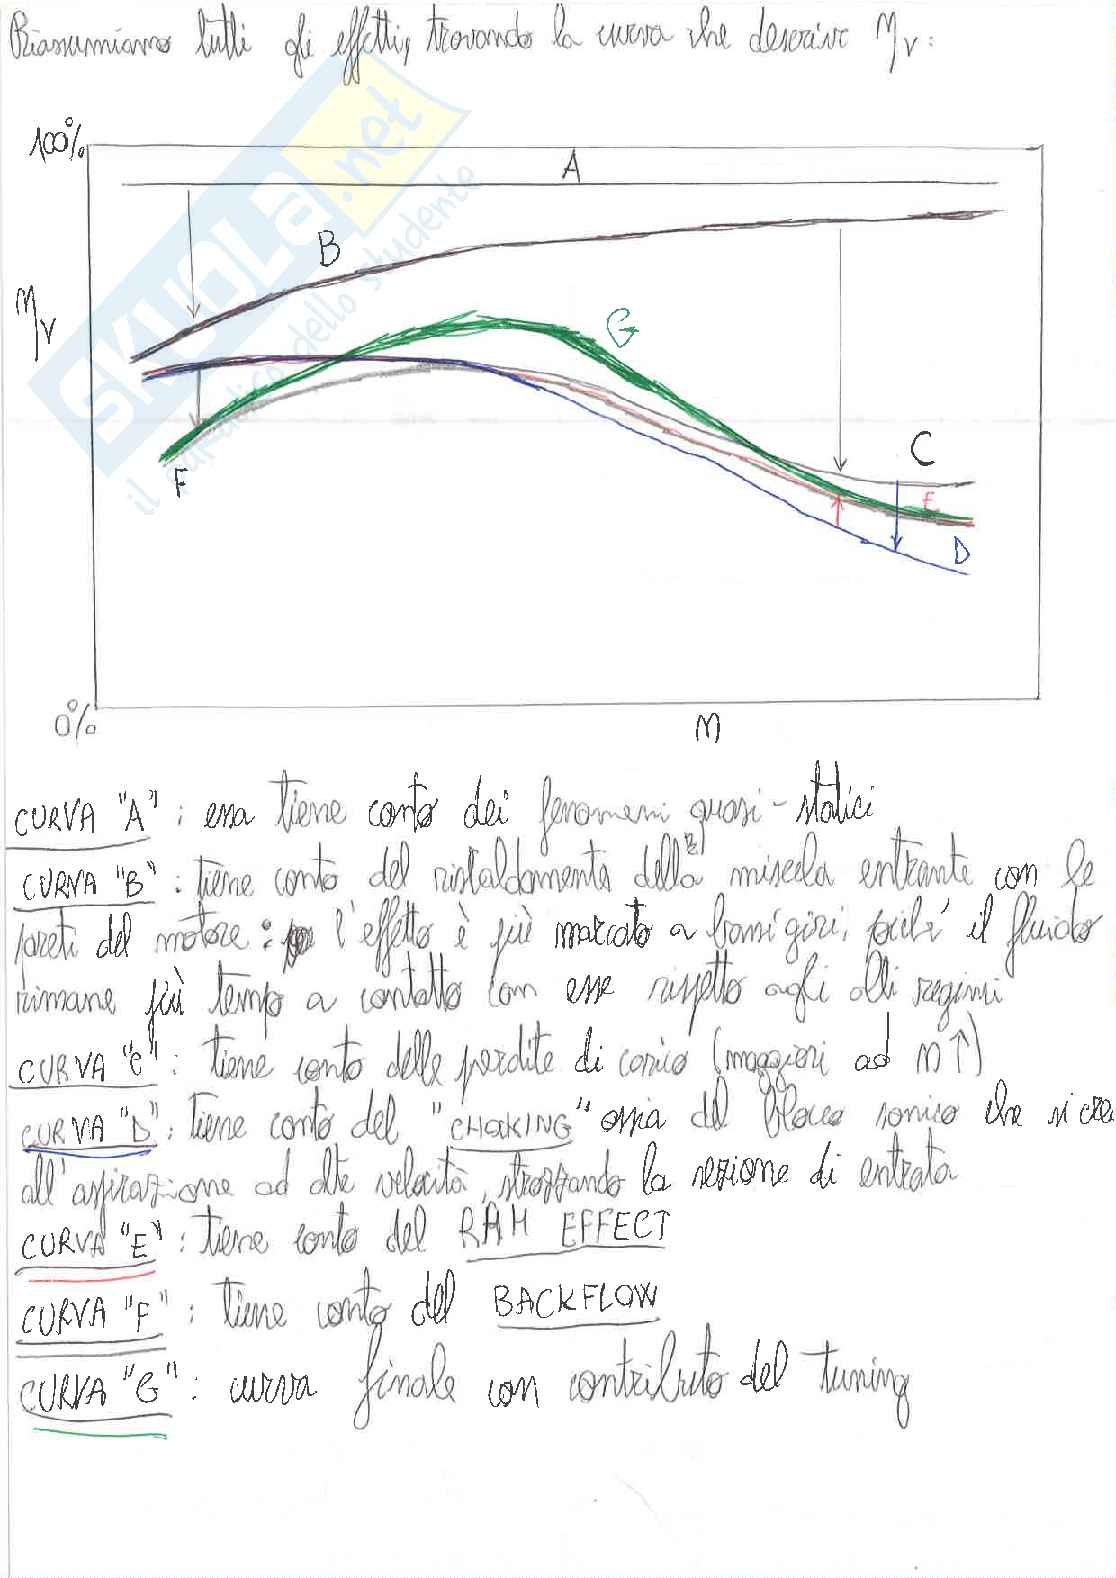 Riassumiamo tutti gli effetti, trovando la curva che descrive ηv:
100%
A
B
ηv
G
C
F
E
D
0%
n
CURVA "A": essa tiene conto dei fenomeni quasi-statici
CURVA "B": tiene conto del riscaldamento della miscela entrante con le
pareti del motore: l'effetto è più marcato a bassi giri, perché il fluido
rimane più tempo a contatto con esse rispetto agli alti regimi
CURVA "C": tiene conto delle perdite di carico (maggiori ad n↑)
CURVA "D": tiene conto del "CHOKING" ossia del blocco sonico che si crea
all'aspirazione ad alte velocità, strozzando la sezione di entrata
CURVA "E": tiene conto del RAM EFFECT
CURVA "F": tiene conto del BACKFLOW
CURVA "G": curva finale con contributo del tuning
SKUOLA.net
il paradiso dello studente